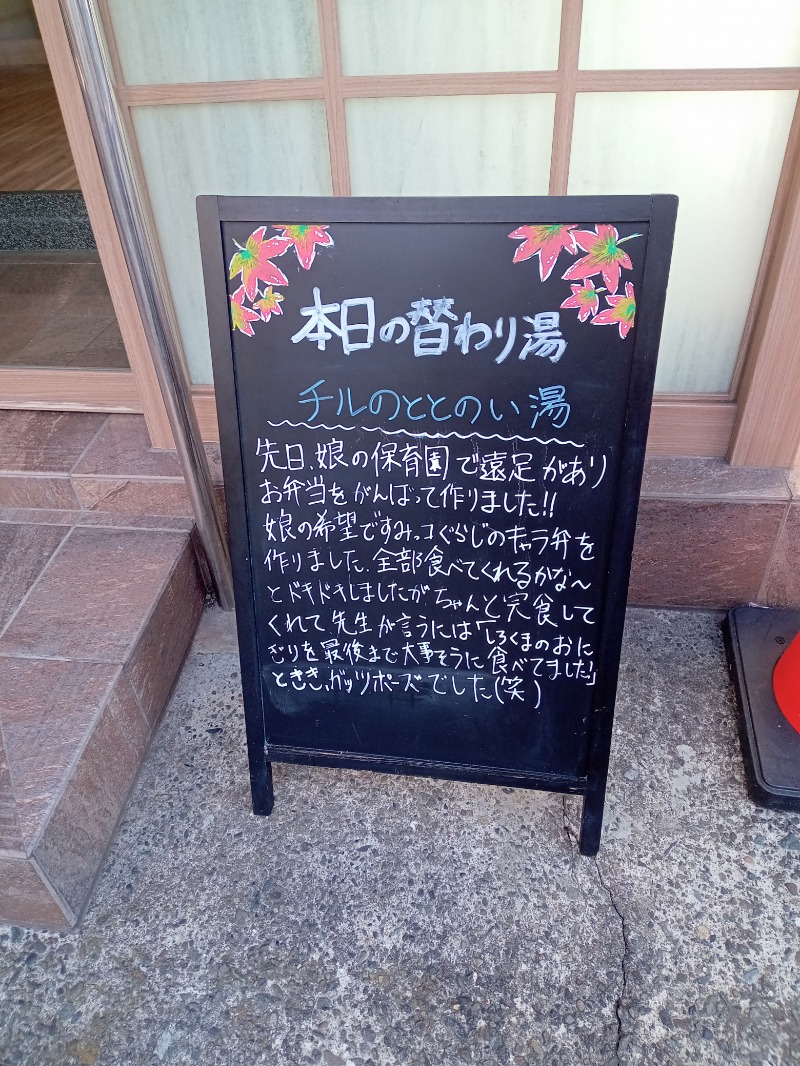 本日の替わり湯
チルのととのい湯
先日、娘の保育園で遠足があり
お弁当をがんばって作りました!!
娘の希望ですみっコぐらしのキャラ弁を
作りました、全部食べてくれるかな〜
とドキドキしましたが、ちゃんと完食して
くれて先生が言うには「しろくまのおに
ぎりを最後まで大事そうに食べてました」
ときき、ガッツポーズでした(笑)